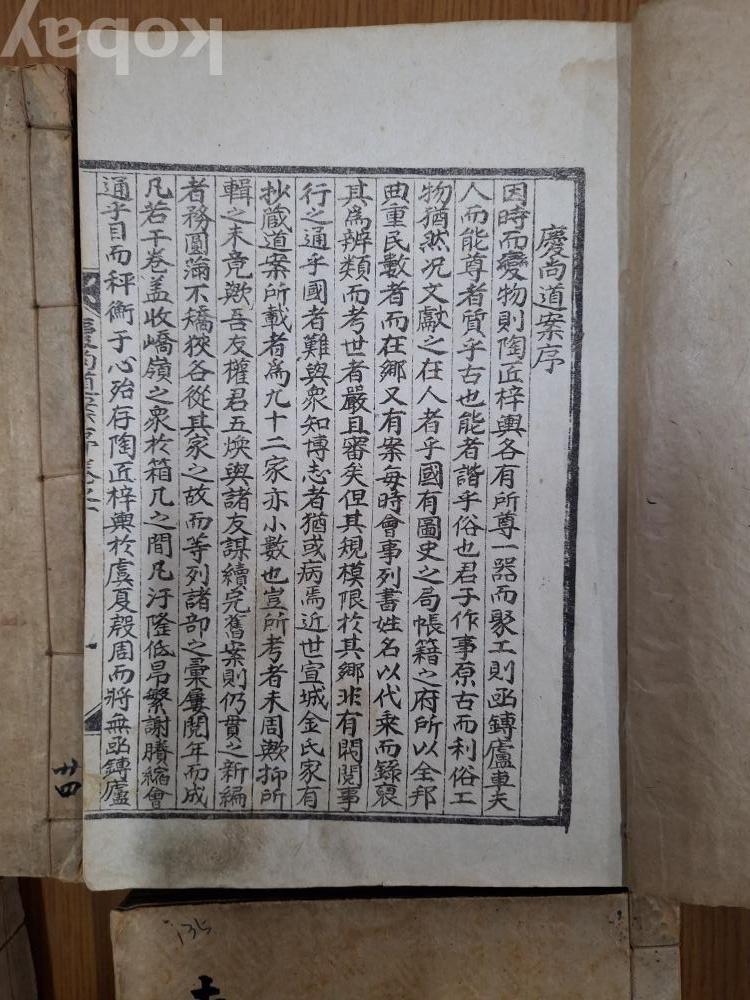 kobay
慶尚道案序
因時而變物則陶匠梓輿各有所尊一器而聚工則函鎛廬車夫
人而能尊者質乎古也能者諧乎俗也君子作事原古而利俗工
物猶然况文獻之在人者乎國有圖史之局帳籍之府所以全邦
典重民數者而在鄉又有案每時會事列書姓名以代乘而錄裒
其爲辨類而考世者嚴且審矣但其規模限於其鄉非有閥閱事
行之通乎國者難與衆知博志者猶或病焉近世宣城金氏家有
抄蔵道案所載者爲九十二家亦小數也豈所考者未周歟抑所
輯之未竟歟吾友權君五煥與諸友謀續完舊案則仍貫之新編
者務圓蕩不矯狹各從其家之故而等列諸部之稾屢閱年而成
凡若干卷盖收嶠嶺之衆於箱几之間凡汙隆低昂繁謝賸縮會
通乎目而秤衡于心殆存陶匠梓輿於虞夏殷周而將無函鎛廬
慶尚道案序 卷之一
一
廿四
135